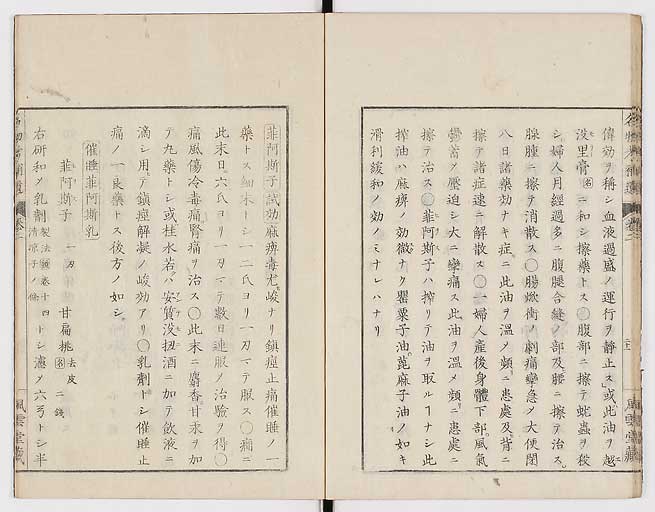 偉効ヲ称シ血液過盛ノ運行ヲ静止ス或此油ヲ越
没里膏名ニ和シ擦薬トス〇腹部ニ擦テ蚘蟲ヲ殺
シ婦人月経過多ニ腹腿合縫ノ部及腰ニ擦テ治ス。
腺腫ニ擦テ消散ス〇腸焮衝ノ劇痛攣急〆大便閉
八日諸薬効ナキ症ニ此油ヲ温メ頻ニ患處及背ニ
擦テ諸症速ニ解散ス〇一婦人産後身體下部風氣
欝蓄〆壓迫シ大ニ攣痛ス此油ヲ温メ頻ニ患處ニ
擦テ治ス〇菲阿斯子ハ搾リテ油ヲ取ルヿナシ此
搾油ハ麻痺ノ効微ナク罌粟子油蓖麻子油ノ如キ
滑利緩和ノ効ノミナレハナリ
菲阿斯子試効麻痺毒尤峻ナリ鎮痙止痛催睡ノ一
薬トス細末トシ一二氏ヨリ一刃マテ服ス〇痛ニ
此末ヲ六氏ヨリ一刃マテ數日連服〆治驗ヲ得〇
痛風傷冷毒痛腎痛ヲ治ス〇此末ニ麝香甘汞ヲ加
テ丸薬トシ或桂水若ハ安質没扭酒ニ加テ飲液ニ
滴シ用テ鎮痙解凝ノ峻効アリ〇乳劑トシ催睡止
痛ノ一良薬トス後方ノ如シ
催睡菲阿斯乳
菲阿斯子 一刃 甘扁桃去皮名二錢
右研和〆乳劑製法藥巻十四清涼子ノ條トシ濾〆六弓トシ半
風雲堂藏
風雲堂藏